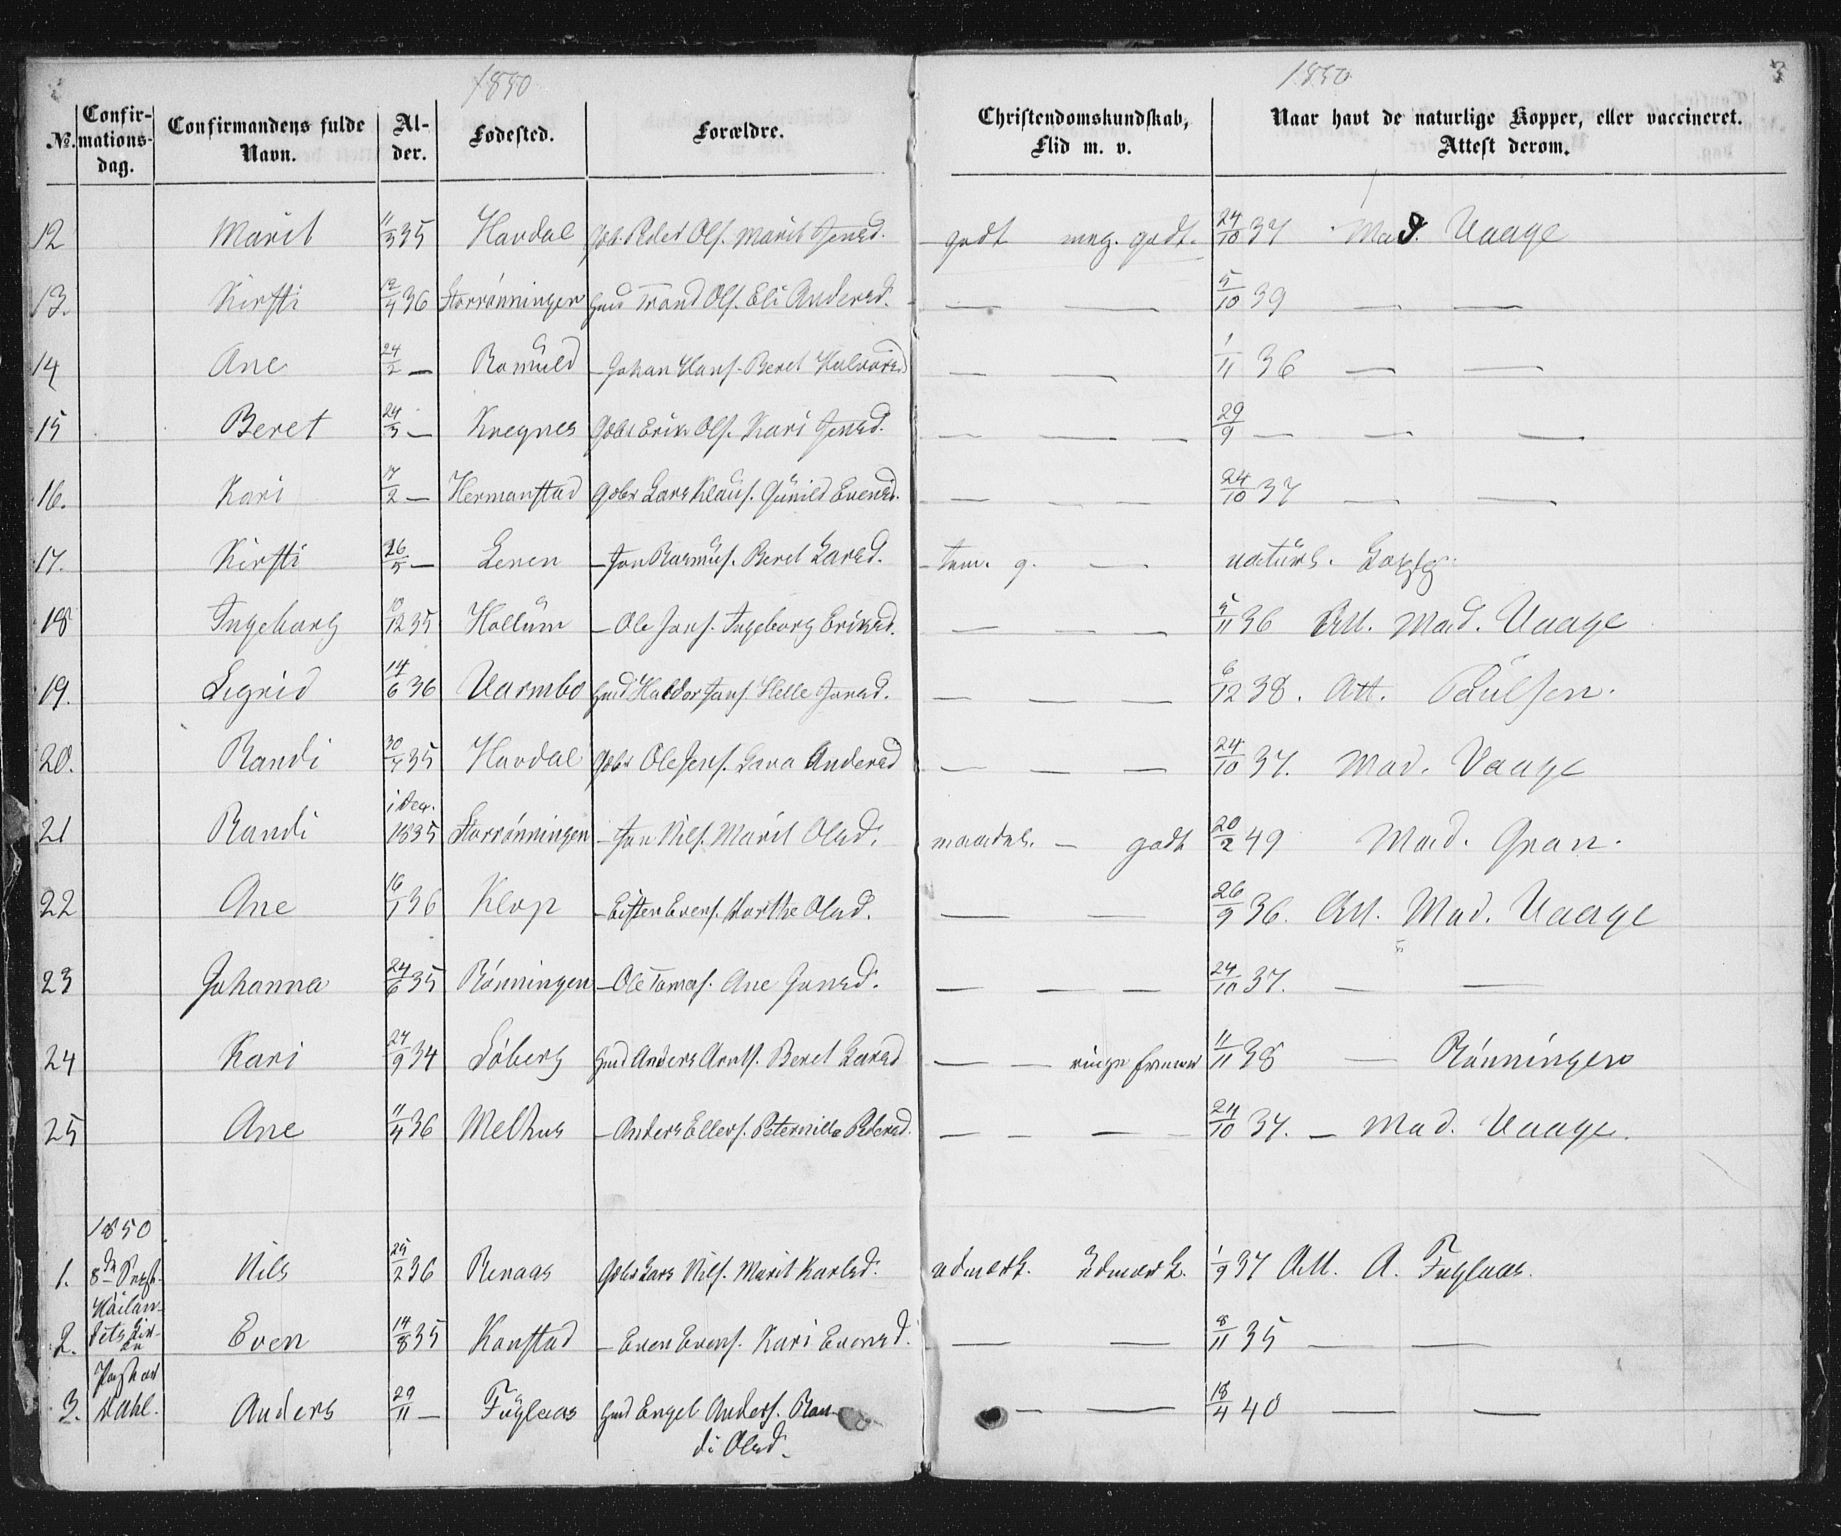 1850
1850
3
No. Confir-mations-dag. Confirmandens fulde Navn. Al-der. Fødested. Forældre. Christendomskundskab, Flid m. v. Naar havt de naturlige Kopper, eller vaccineret. Attest derom.
12 Marit 11/3 35 Havdal Peder Ols. Marit Jensd. godt meg. godt. 24/10 37 Mad. Vaage
13. Kirsti 36 Storrønningen Huus Trond Ols. Eli Andersd. — — 5/10 39 — —
14 Ane 24/2 — Romuld — Johan Hans. Beret Halvorsd — — 1/11 36 — —
15 Beret 24/3 — Kregnes Gbr Erik Ols. Kari Jensd. — — — 29/9 — — —
16. Kari 7/2 — Hermanstad Gbr Lars Klaus. Gunild Evensd. — — — 24/10 37 — —
17. Kirsti 26/5 — Lenen — Jon Rasmus. Beret Larsd. tem. g. — naturl. Kopp.
18 Ingeborg 12 35 Hollum — Ole Jons. Ingeborg Eriksd. — — — 5/11 36 Att. Mad. Vaage
19. Sigrid 14/6 36 Varmbo Huus Haldor Jans. Helle Jonsd. — — — 6/12 38. Att. Paulsen.
20. Randi 30/4 35 Havdal Gbr Ole Jens. Sara Andersd — — — 24/10 37. Mad. Vaage
21 Randi 1 Dec. 1835 Storrønningen — Jon Nils. Marit Olsd. maadel. — godt 20/2 49 Mad. Gran.
22 Ane 16/1 36 Klop — Eisten Evens. Marthe Olsd. — — 26/9 36. Att. Mad. Vaage
23 Johanna 24/6 35 Rønningen — Ole Tomas. Ane Jonsd. — — — 24/10 37. — —
24 Kari 27/9 34 Søberg Huus Anders Arnts. Beret Larsd — — ringe 11/11 38 — Rønningen
25 Ane 11/4 36 Melhus — Anders Ellevs. Peternille Pedersd. — — — — 24/10 37. — Mad. Vaage.
1850.
1. 8de Nils 25/2 36 Renaas Gbr Lars Nils. Marit Karlsd. udmærk. Udmærk. 1/9 37 Att. A. Fuglaas.
Høilan-
2. dets Kir- Even 14/8 35 Kanstad — Even Evens. Kari Evensd. — — 8/11 35 — —
ke
3. Dahl. Anders 29/11 — Fuglaas Huus Engel Anders. Ran- — — 18/4 40 — —
di Olsd.